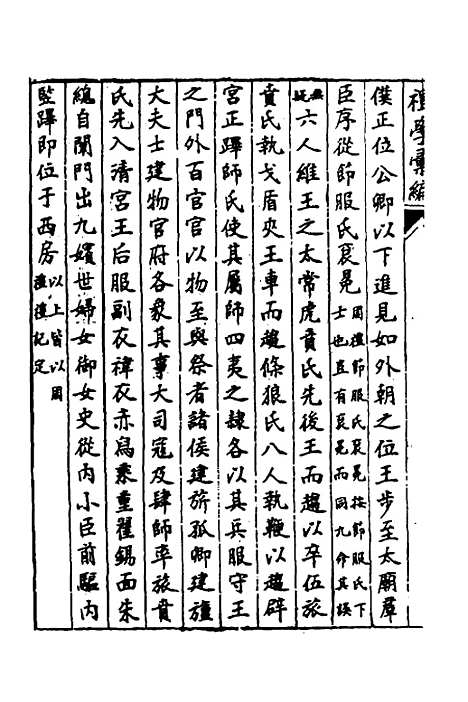 禮學彙編
僕正位公卿以下進見如外朝之位王步至太廟羣
臣序從節服氏袞冕周禮節服氏袞冕按節服氏下士也豈有袞冕而同九命其誤
無疑六人維王之太常虎賁氏先後王而趨以卒伍旅
賁氏執戈盾夾王車而趨條狼氏八人執鞭以趨辟
宮正蹕師氏使其屬師四夷之隸各以其兵服守王
之門外百官官以物至與祭者諸侯建旂孤卿建旜
大夫士建物官府各象其事大司寇及肆師率旅賁
氏先入清宮王后服副衣褘衣赤舄乘重翟錫面朱
總自闈門出九嬪世婦女御女史從內小臣前驅內
監蹕即位于西房以上皆以周禮禮記定